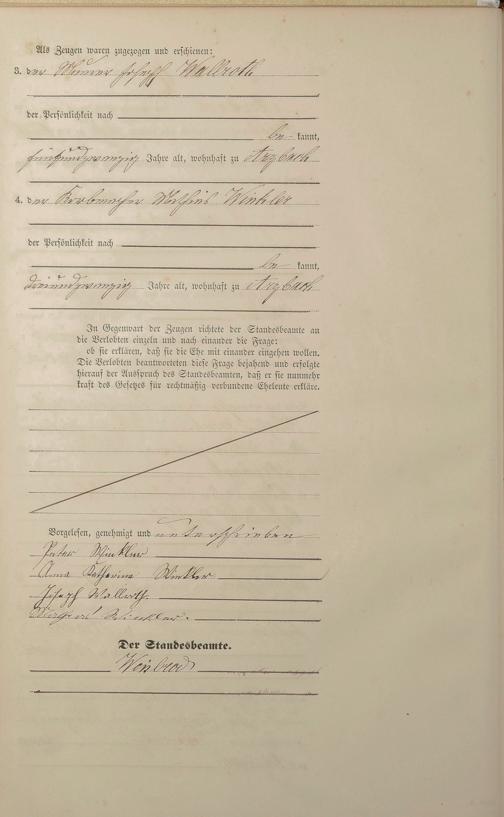 Als Zeugen waren zugezogen und erschienen:
3. der Maurer Joseph Wallroth
der Persönlichkeit nach
be kannt,
fünfundzwanzig Jahre alt, wohnhaft zu Arzbach
4. der Korbmacher Mathias Winkler
der Persönlichkeit nach
be kannt,
dreiundzwanzig Jahre alt, wohnhaft zu Arzbach
In Gegenwart der Zeugen richtete der Standesbeamte an
die Verlobten einzeln und nach einander die Frage:
ob sie erklären, daß sie die Ehe mit einander eingehen wollen.
Die Verlobten beantworteten diese Frage bejahend und erfolgte
hierauf der Ausspruch des Standesbeamten, daß er sie nunmehr
kraft des Gesetzes für rechtmäßig verbundene Eheleute erkläre.
Vorgelesen, genehmigt und unterschrieben
Peter Winkler
Anna Katharina Winkler
Joseph Wallroth
Winkler.
Der Standesbeamte.
Weinbrod